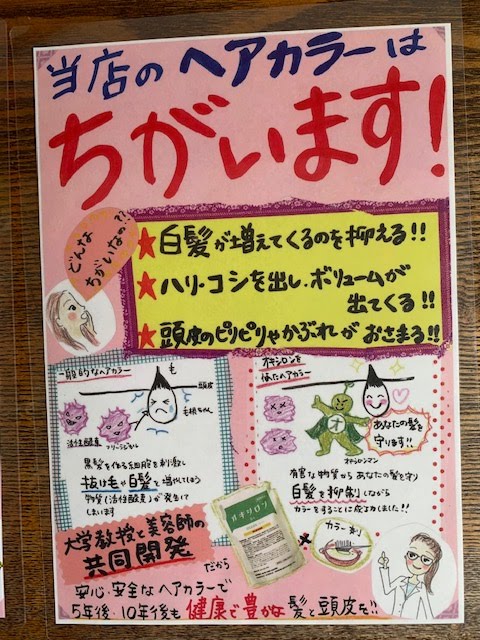 当店のヘアカラーは
ちがいます!
どんな
ちがいなの??
★白髪が増えてくるのを抑える!!
★ハリ・コシを出し、ボリュームが
出てくる!!
★頭皮のピリピリやかぶれがおさまる!!
一般的なヘアカラー
毛
頭皮
毛根ちゃん
活性酸素
フリーラジカル
黒髪を作る細胞を刺激し
抜け毛や白髪を増やしてしまう
物質(活性酸素)が発生して
しまいます
オキシロンを
使たヘアカラー
あなたの髪を
守ります!!
オ
オキシロンマン
有害な物質からあなたの髪を守り
白髪を抑制しながら
カラーをすることに成功しました!!
大学教授と美容師の
共同開発
だから
オキシロン
×
カラー剤
安心・安全なヘアカラーで
5年後・10年後も健康で豊かな髪と頭皮を!!